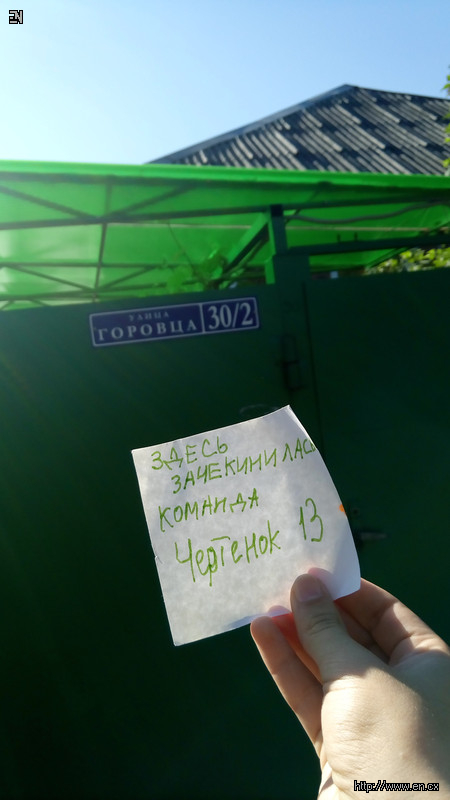 EN
УЛИЦА
ГОРОВЦА 30/2
ЗДЕСЬ
ЗАЧЕКИНИЛАСЬ
КОМАНДА
Чертенок 13
http://www.en.cx